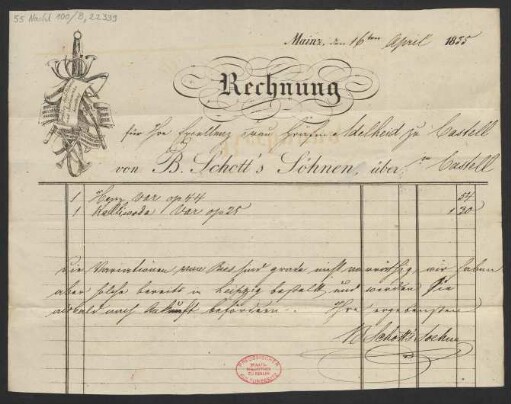 55 Nachl 100/B, 22399
Mainz, den 16ten April 1835
Rechnung
für Ihre Excellenz Frau Gräfin Adelheid zu Castell
von B. Schott's Söhnen, über in Castell
1 Herz Var op 44 54
1 Kalliwoda Var op 25 1 30
Die Variationen sind grade nicht vorräthig, wir haben
aber solche bereits in Leipzig bestellt und werden Sie
alsbald nach Ankunft befördern. Ihre ergebensten
B Schott's Soehne